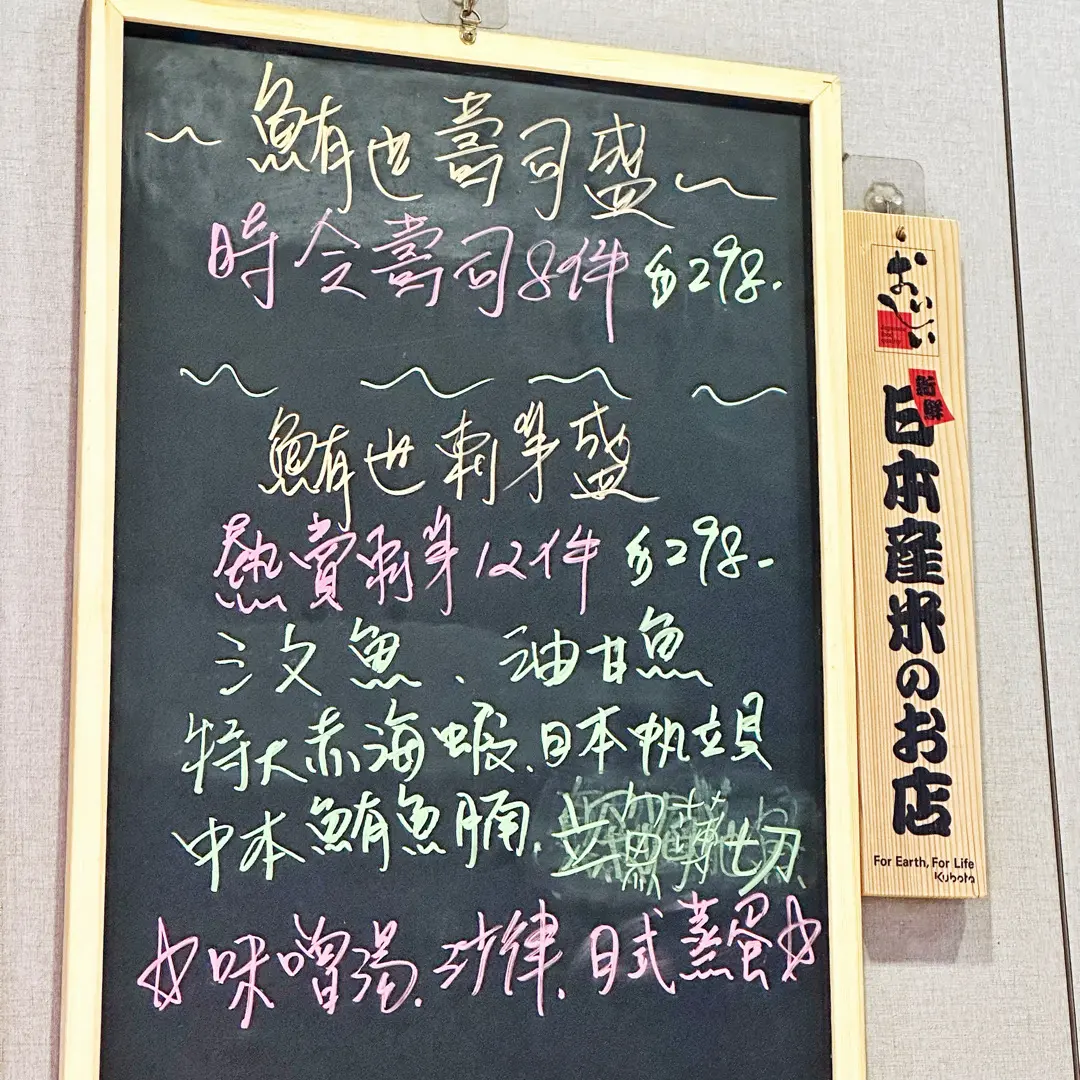 ~鮪也壽司盛~
時令壽司8件 $298.
鮪也刺身盛
熱賞刺身12件 $298-
三文魚、油甘魚
特大赤海蝦、日本帆立貝
中本鮪魚腩、
☆味噌湯、沙律、日式蒸蛋☆
おいしい
新鮮
日本産米のお店
For Earth, For Life
Kubota